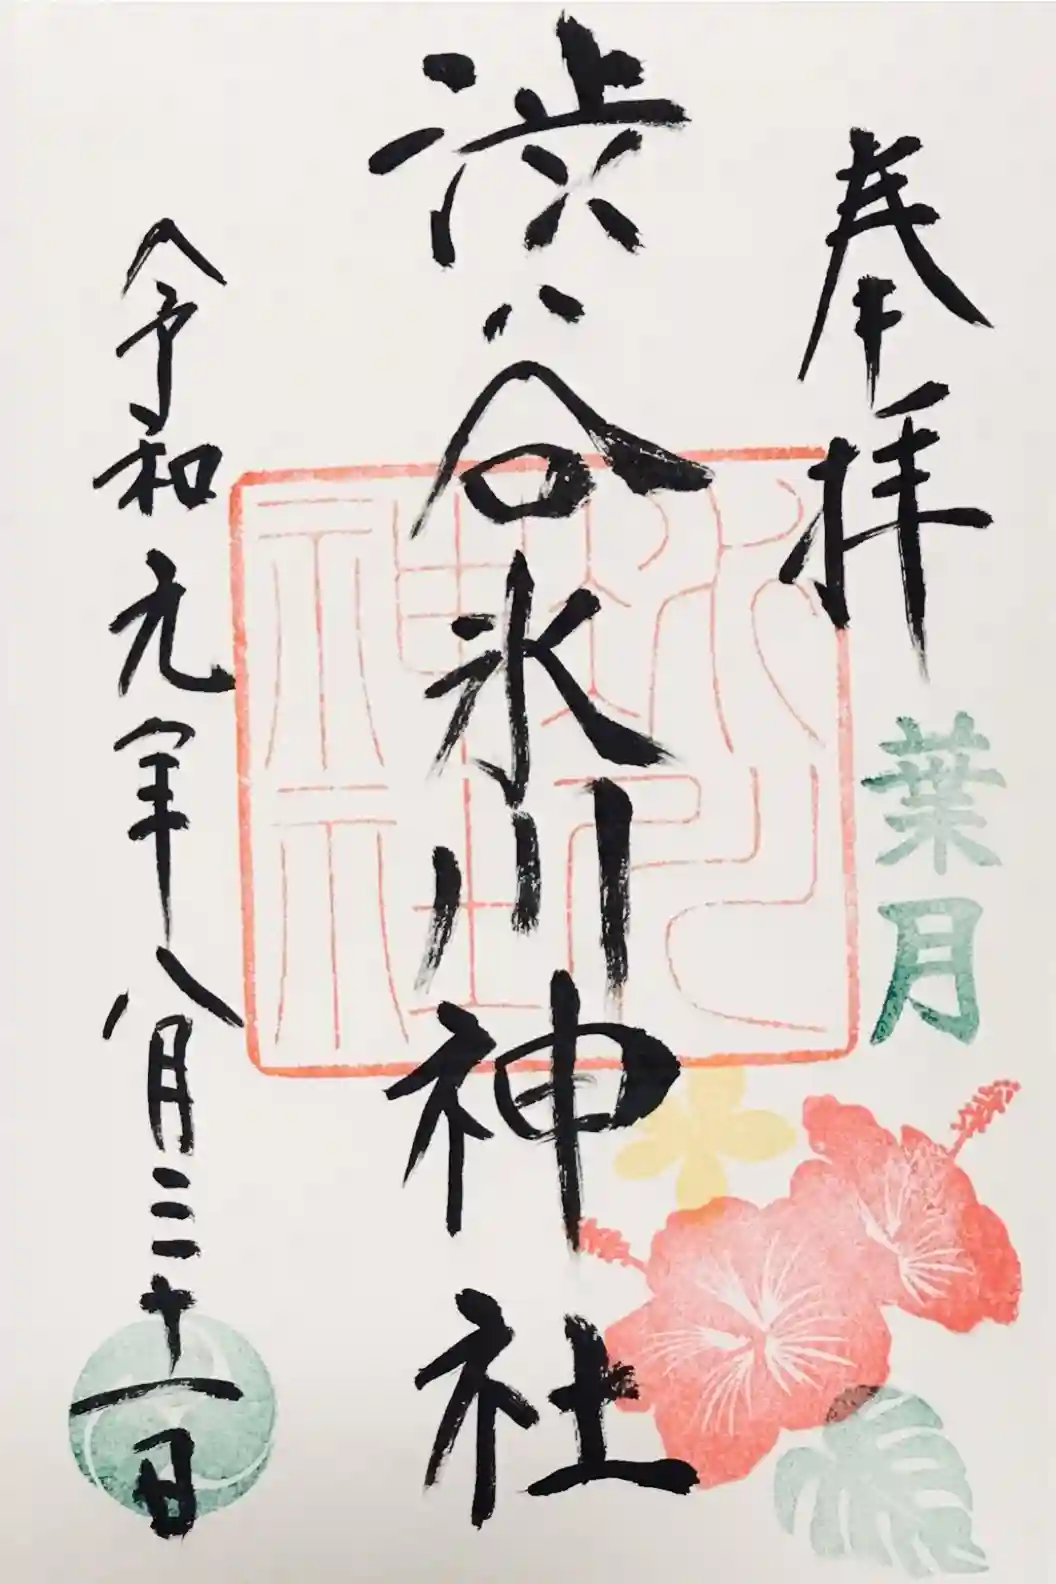 奉拝
葉月
渋谷氷川神社
氷川神社
令和元年八月三十一日